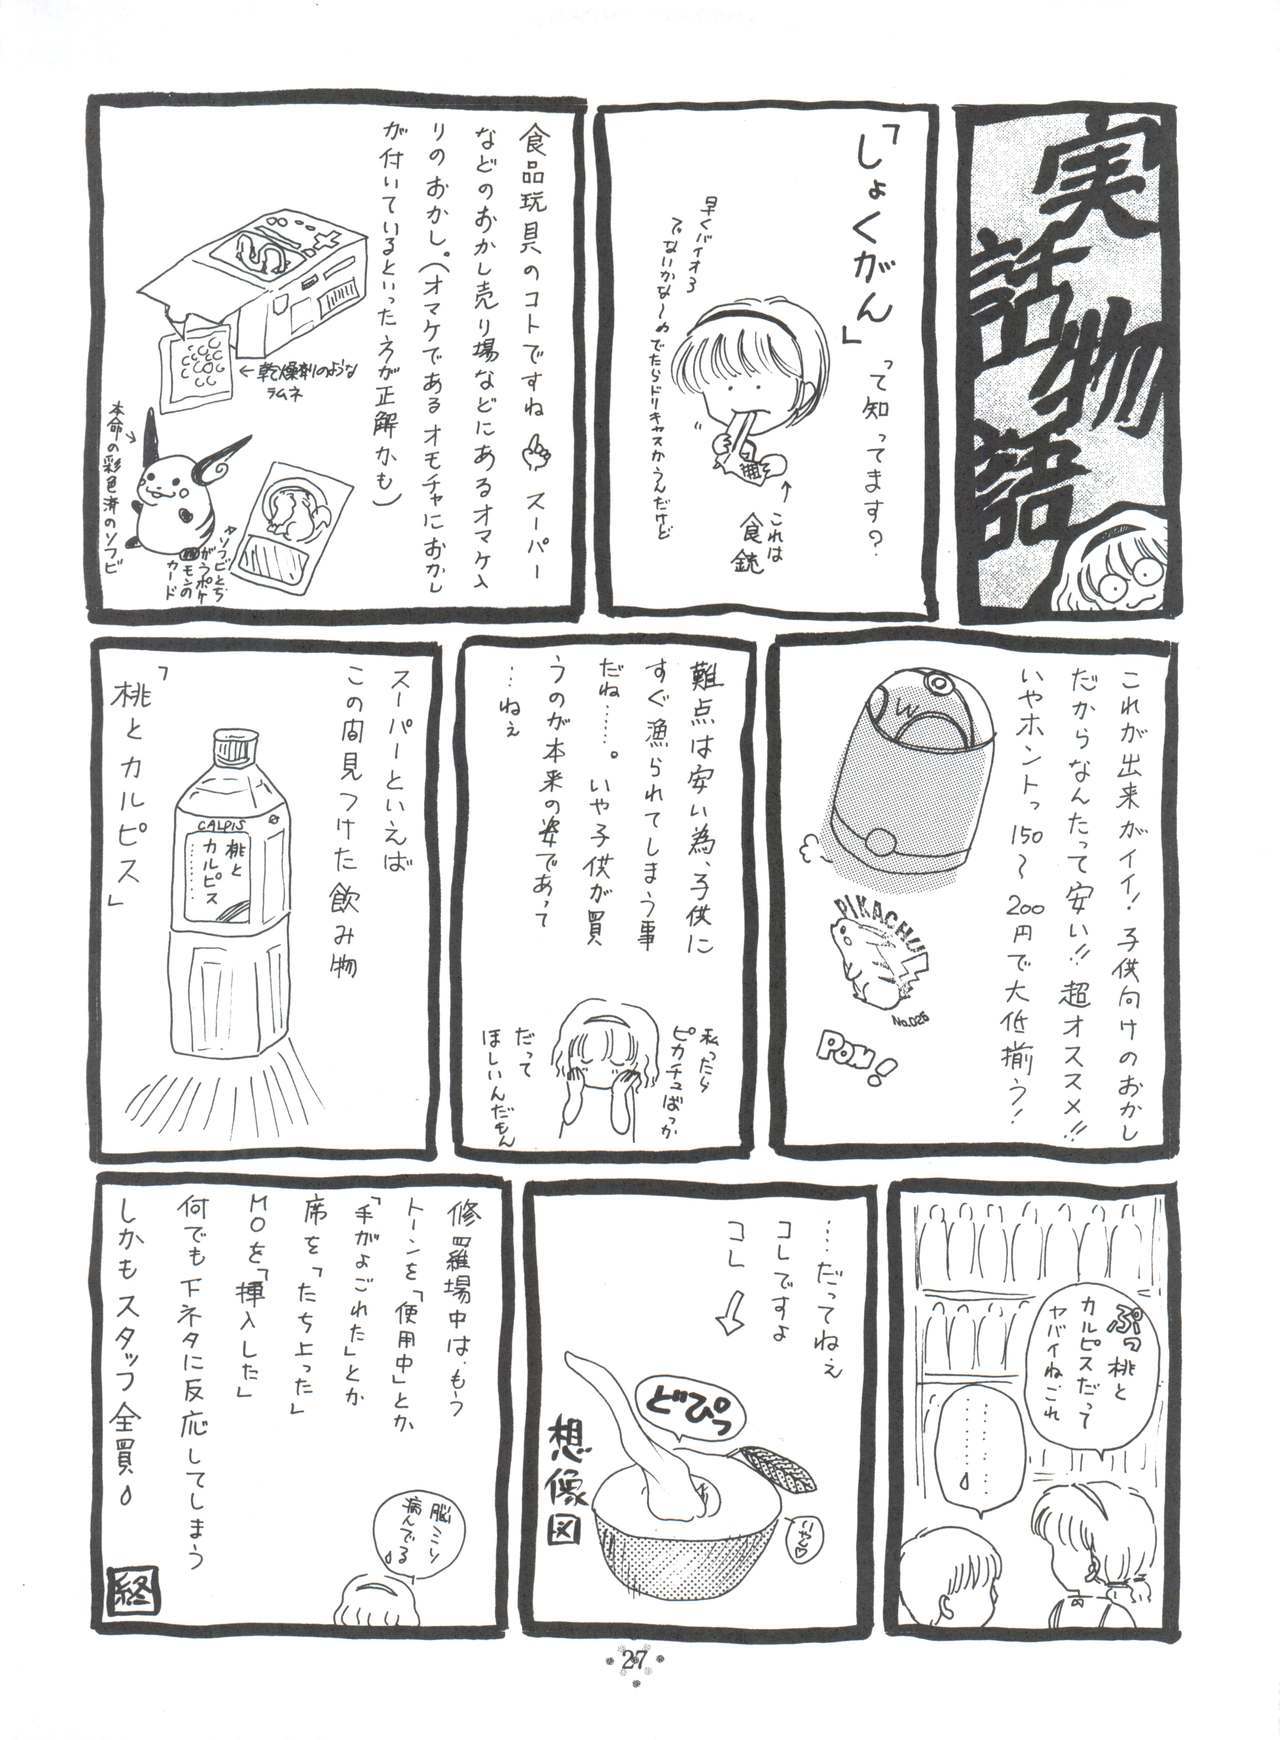 実話物語
「しょくがん」
って知ってます?
早くバイオ3
でないかな〜のでたらドリキャスかうんだけど
これは
食銃
食品玩具のコトですね スーパー
などのおかし売り場などにあるオマケ入
りのおかし。(オマケであるオモチャにおかし
が付いているといった方が正解かも)
←乾燥剤のような
ラムネ
本命の彩色済のソフビ
ソフビとち
がうポケ
モンの
カード
これが出来がイイ!子供向けのおかし
だからなんたって安い!!超オススメ!!
いやホントっ150〜200円で大低揃う!
PIKACHU
No.026
POM!
難点は安い為、子供に
すぐ漁られてしまう事
だね……。いや子供が買
うのが本来の姿であって
…ねぇ
私ったら
ピカチュばっか
だって
ほしいんだもん
スーパーといえば
この間見つけた飲み物
「桃とカルピス」
CALPIS
桃と
カルピス
ぷっ桃と
カルピスだって
ヤバイねごれ
……だってねぇ
コレですよ
コレ
どぴっ
いやん♡
想像図
修羅場中は、もう
トーンを「使用中」とか
「手がよごれた」とか
席を「たち上った」
MOを「挿入した」
何でも下ネタに反応してしまう
しかもスタッフ全員
脳ミソ
病んでる
終
27